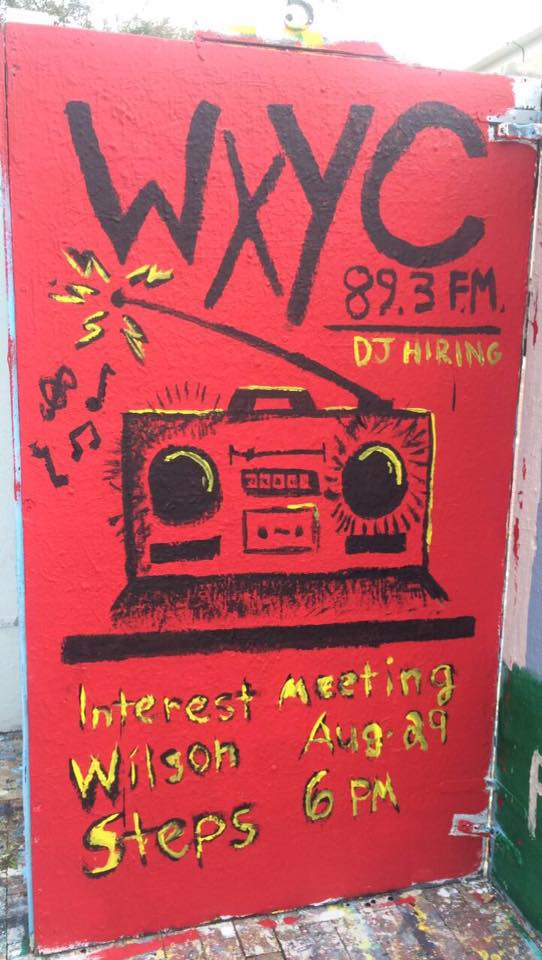 WXYC
89.3 F.M.
DJ HIRING
Interest Meeting
Wilson Aug. 29
Steps 6 PM